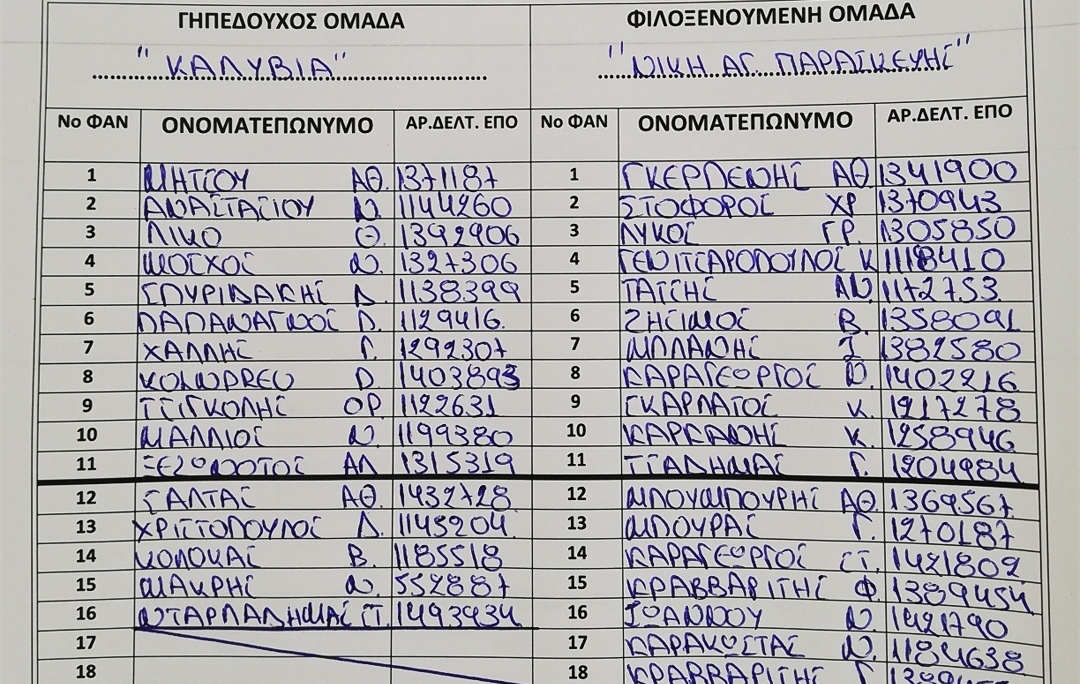 ΓΗΠΕΔΟΥΧΟΣ ΟΜΑΔΑ ΦΙΛΟΞΕΝΟΥΜΕΝΗ ΟΜΑΔΑ
"ΚΑΛΥΒΙΑ" "ΝΙΚΗ ΑΓ. ΠΑΡΑΣΚΕΥΗΣ"
Νο ΦΑΝ ΟΝΟΜΑΤΕΠΩΝΥΜΟ ΑΡ.ΔΕΛΤ. ΕΠΟ Νο ΦΑΝ ΟΝΟΜΑΤΕΠΩΝΥΜΟ ΑΡ.ΔΕΛΤ. ΕΠΟ
1 ΜΗΤΣΟΥ ΑΘ. 1371187 1 ΓΚΕΡΛΕΝΗΣ ΑΘ 1341900
2 ΑΝΑΣΤΑΣΙΟΥ Ν. 1144260 2 ΣΤΟΦΟΡΟΣ ΧΡ 1370943
3 ΛΙΚΟ Θ. 1392906 3 ΛΥΚΟΣ ΓΡ. 1305850
4 ΜΟΣΧΟΣ Ν. 1327306 4 ΓΕΝΙΤΣΑΡΟΠΟΥΛΟΣ Κ 1118410
5 ΣΠΥΡΙΔΑΚΗΣ Δ. 1138399 5 ΤΑΤΣΗΣ ΑΝ. 1172753
6 ΠΑΠΑΝΑΓΝΟΣ Π. 1129416 6 ΖΗΣΙΜΟΣ Β. 1358091
7 ΧΑΛΛΗΣ Γ. 1292307 7 ΜΠΛΑΝΗΣ Ι. 1382580
8 ΚΟΛΝDREU D. 1403893 8 ΚΑΡΑΓΕΩΡΓΟΣ Ν. 1402216
9 ΤΣΙΓΚΟΛΗΣ ΟΡ. 1122631 9 ΓΚΑΡΛΑΤΟΣ Κ. 1217278
10 ΜΑΛΛΙΟΣ Ν. 1199380 10 ΚΑΡΚΑΝΗΣ Κ. 1258946
11 ΑΠ. 1315319 11 ΤΣΑΔΗΜΑΣ Γ. 1204984
12 ΣΑΛΤΑΣ ΑΘ. 1432728 12 ΜΠΟΥΜΠΟΥΡΗΣ ΑΘ. 1369567
13 ΧΡΙΣΤΟΠΟΥΛΟΣ Δ. 1145204 13 ΜΠΟΥΡΑΣ Γ. 1270187
14 ΚΟΛΟΚΑΣ Β. 1185518 14 ΚΑΡΑΓΕΩΡΓΟΣ ΣΤ. 1421802
15 ΜΑΚΡΗΣ Ν. 552887 15 ΚΡΑΒΒΑΡΙΤΗΣ Φ. 1389454
16 ΝΤΑΡΠΑΔΗΜΑΣ ΣΤ. 1493934 16 ΙΩΑΝΝΟΥ Ν. 1421790
17 17 ΚΑΡΑΚΩΣΤΑΣ Ν. 1184638
18 18 ΚΡΑΒΒΑΡΙΤΗΣ Γ.